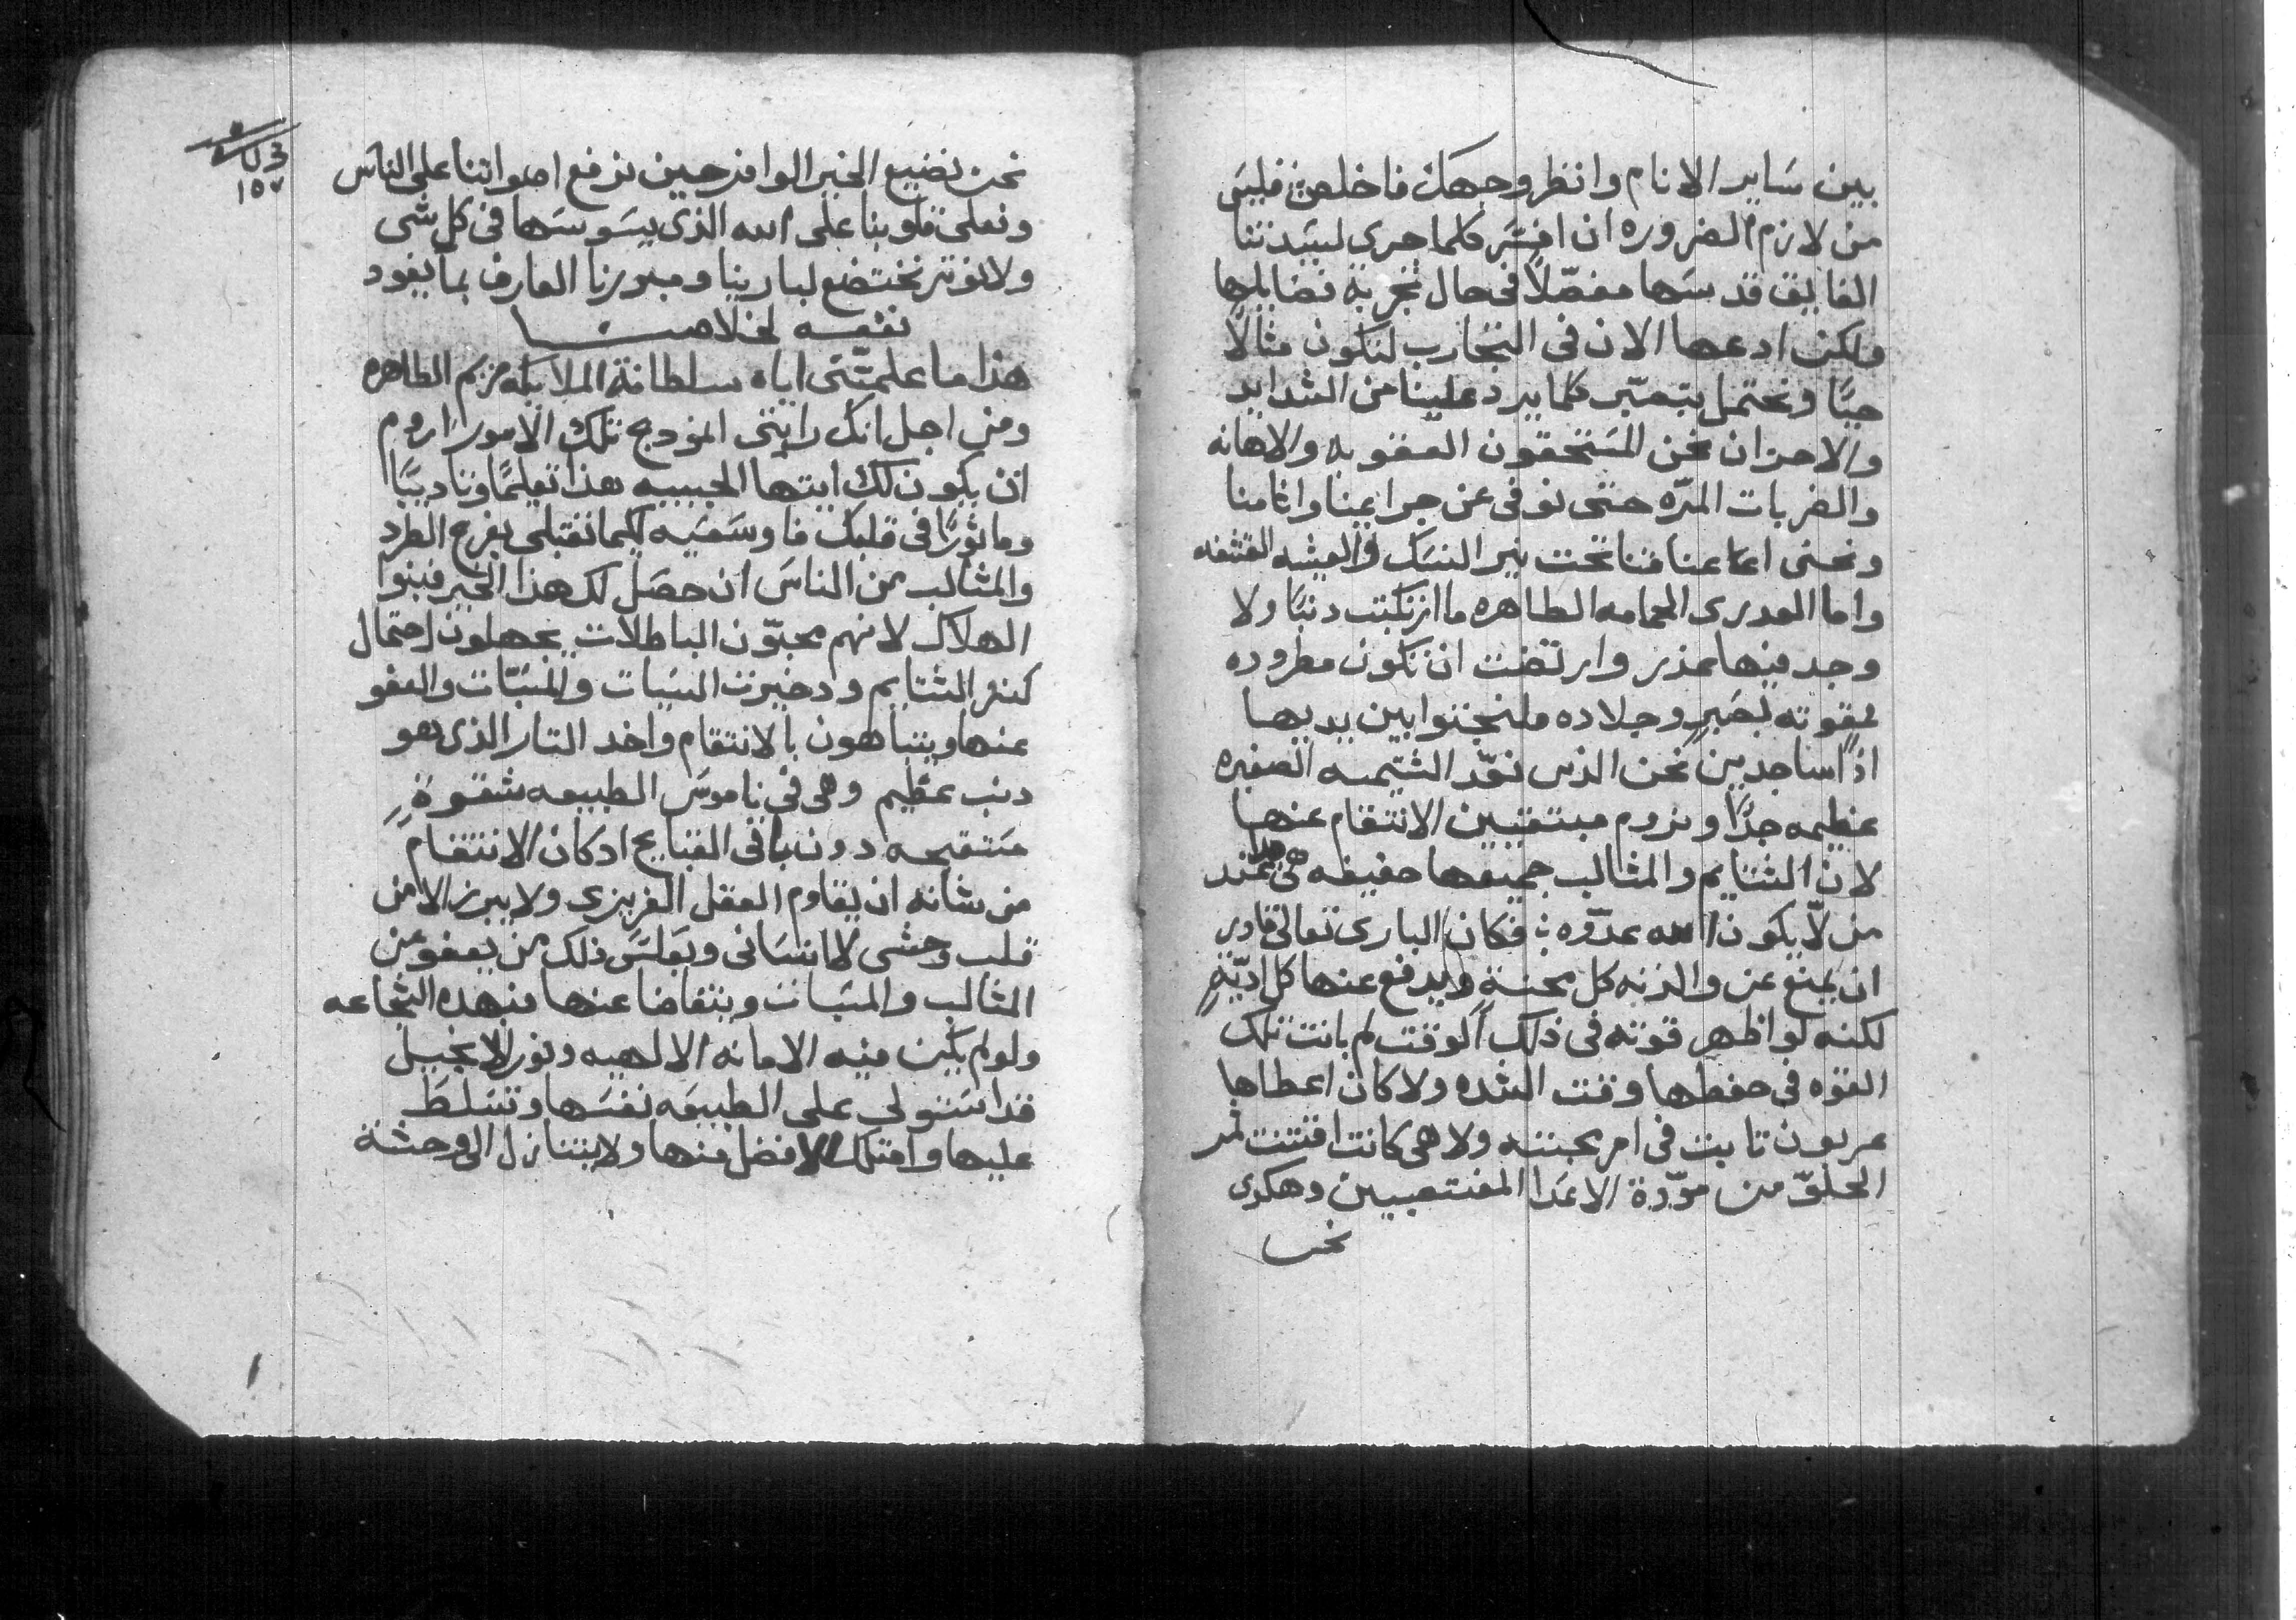 بين ساير الانام وانظر وجهك فاخلص: فليس
من لازم الضروره ان افسّر كلما جرى لسيدتنا
الفايق قدسها مفصّلاً في حال تجربة فضايلها
ولكن ادعها الان في التجارب لتكون مثالاً
حيًا ونحتمل بتصبّر كلما يرد علينا من الشدايد
والاحزان نحن المستحقون العقوبه والاهانه
والضربات المرّه حتى نوفي عن جرايمنا واثامنا
ونحني اعناقنا تحت نير النسك والعيشه القشفه
واما العدرى الحمامه الطاهره ما ارتكبت دنبًا ولا
وجد فيها عذر وارتضت ان تكون مطروده
بصبرٍ وجلاده فلنجثوا بين يديها
اذًا ساجدين نحن الذين نعّد الشتيمه الصغيره
عظيمه جدًا ونروم الانتقام عنها
لان الشتايم والمثالب جميعها خفيفه هي عند
من لا يكون الله عدّوه: فكان الباري تعالى قادر
ان يمنع عن والدته كل محنة ويدفع عنها كل اديّةٍ
لكنه لو اظهر قوته في ذلك الوقت لم بانت تلك
القوه في حفظها وقت الشده ولا كان اعطاها
عربون تابت في امر محبته ولا هي كانت اقتنت ثمر
الحلوّ من مودّة الاعدا المغتصبين وهكدى
نحن
١٥٧
نحن نضيع الخير الوافر حين نرفع اصواتنا على الناس
ونعلي قلوبنا على الله الذي يسوسها في كل شي
ولا نوثر نختضع لبارينا ومبررنا العارف بما يفود
نفعه لخلاصنا
هذا ما علمتّني اياه سلطانة الملايكه مريم الطاهره
ومن اجل انك رايتي المودج تلك الامور اروم
ان يكون لك ايتها الحبيبه هذا تعليمًا وتاديبًا
وماثورًا في قلبك فاوسعيه لكيما تقتبلي بفرح الطرد
والمثالب من الناس ان حصل لك هذا الخير فبنوا
الهلاك لانهم محبّون الباطلات يجهلون احتمال
كنز الشتايم ودخيرت السبات والمسبّات والعفو
عنها ويتباهون بالانتقام واخد التار الذي هو
دنب عظيم وهي في ناموس الطبيعه شقوةٍ
مستقبحه دون باقي القبايح اد كان الانتقام
من شانه ان يقاوم العقل الغريزي ولا يبرز الا من
قلب وحشي لا انساني وبعكس ذلك من يعفو عن
المثالب والمسبات ويتغاضا عنها فبهده الشجاعه
ولو لم يكن فيه الامانه الالهيه ونور الانجيل
قد استولى على الطبيعه نفسها وتسلط
عليها وامتلك الافضل منها ولا يتنازل الى وحشة